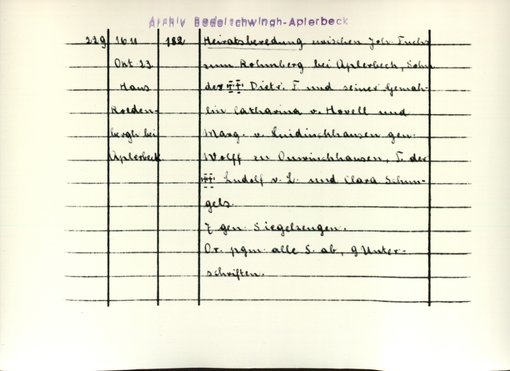 Archiv Bodelschwingh-Aplerbeck
229 1611 182 Heiratsberedung zwischen Joh. Fuchs
Okt 23 zum Rohmberg bei Aplerbeck, Sohn
Haus der ‡‡ Dietr. F und seiner Gemah-
Roden- lin Catharina v. Hovell und
bergh bei Marg. v. Ludinckhausen gen.
Aplerbeck Wolff zu, T. der
‡‡ Ludolf v. L. und Clara Schun-
gels.
7 gen. Siegelzeugen.
Or. pgm. alle S. ab, 9 Unter-
schriften.